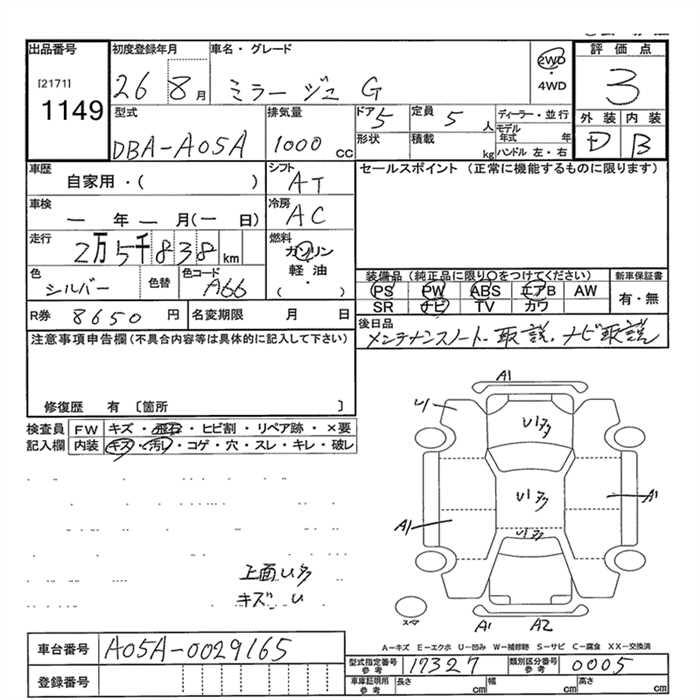 出品番号
[2171]
1149
初度登録年月
26 8月
車名・グレード
ミラージュ G
2WD
・
4WD
評価点
3
外装 内装
D B
型式
DBA-A05A
排気量
1000 cc
ドア 5
形状
定員 5 人
積載 kg
ディーラー・並行
モデル年式 年
ハンドル 左・右
車歴
自家用・( )
シフト
AT
セールスポイント (正常に機能するものに限ります)
車検
ー 年 ー 月(ー 日)
冷房
AC
走行
2万5千838km
燃料
ガソリン
軽・油
( )
色
シルバー
色替
色コード
A66
装備品 (純正品に限り○をつけてください)
PS PW ABS エアB AW
SR ナビ TV カワ
新車保証書
有・無
R券 8650 円
名変期限 月 日
後日品
メンテナンスノート、取説、ナビ取説
注意事項申告欄(不具合内容等は具体的に記入して下さい)
修復歴 有 〔箇所 〕
検査員
記入欄
FW キズ・飛石・ヒビ割・リペア跡・×要
内装 キズ・汚レ・コゲ・穴・スレ・キレ・破レ
A1
U1多
U1多
A1
A1
U1多
上面U多
キズ U
スマ
A1 A2
A−キズ E−エクボ U−凹み W−補修跡 S−サビ C−腐食 XX−交換済
車台番号 A05A-0029165
型式指定番号 参考 17327
類別区分番号 参考 0005
登録番号
車庫証明用 参考 長さ cm 幅 cm 高さ cm